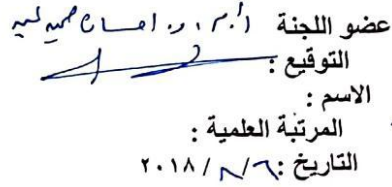 عضو اللجنة أ.م.د. احسان حميد
التوقيع :
الاسم :
المرتبة العلمية :
التاريخ : ٦ / ٨ / ٢٠١٨